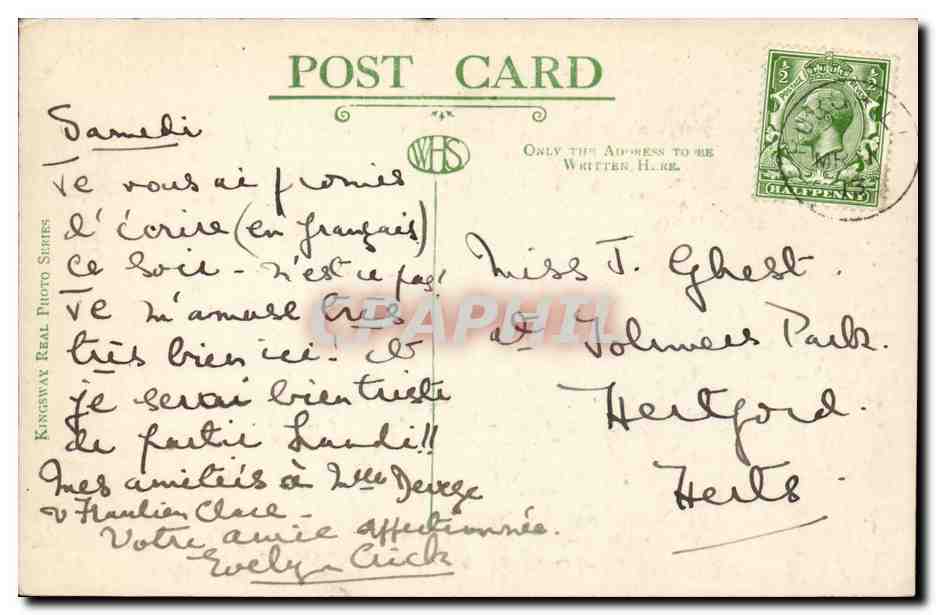 POST CARD
Samedi
WHS
ONLY THE ADDRESS TO BE
WRITTEN HERE.
½ ½
HALFPENNY
13
KINGSWAY REAL PHOTO SERIES
Je vous ai promis
d'écrire (en français)
ce soir - n'est ce pas!
Je m'amuse très
très bien ici - et
je serai bien triste
de partir Lundi!!
Mes amitiés à Mlle
Votre amie affectionnée.
Evelyn Crick
Miss J. Ghest.
Park.
Hertford.
Herts.
CPAPHIL